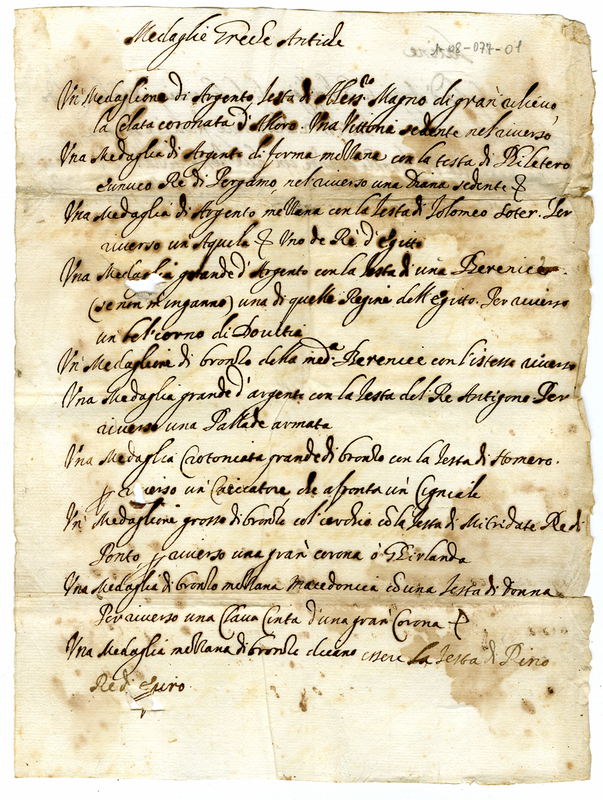 A 98-077-01
Medaglie Greche Antiche
Un' Medaglione di Argento testa di Aless.ro Magno di gran' rilievo
la Celata coronata d'Alloro. Una Vittoria sedente nel riverso
Una Medaglia di Argento di forma mezzana con la testa di Filetero
Eunuco Re di Pergamo, nel riverso una Diana sedente
Una Medaglia di Argento mezzana con la Testa di Tolomeo Soter. Per
riverso un Aquila Uno de Rè d'egitto
Una Medaglia grande d'Argento con la Testa di una Berenice
(se non m'inganno) una di quelle Regine dell'egitto. Per riverso
un bel corno di Dovitia
Un' Medaglione di bronzo della med.a Berenice con l'istesso riverso
Una Medaglia grande d'argento con la Testa del Re Antigono Per
riverso una Pallade armata
Una Medaglia Crotoniata grande di bronzo con la Testa di Homero.
riverso un' Cacciatore che afronta un' Cignale
Un' Medaglione grosso di bronzo col cerchio cō la Testa di Mitridate Re di
Ponto riverso una gran' corona ò Ghirlanda
Una Medaglia di bronzo mezzana Macedonica cō una Testa di Donna
Per riverso una Clava Cinta d'una gran' Corona
Una Medaglia mezzana di bronzo dicano essere la Testa di Pirro
Re d'